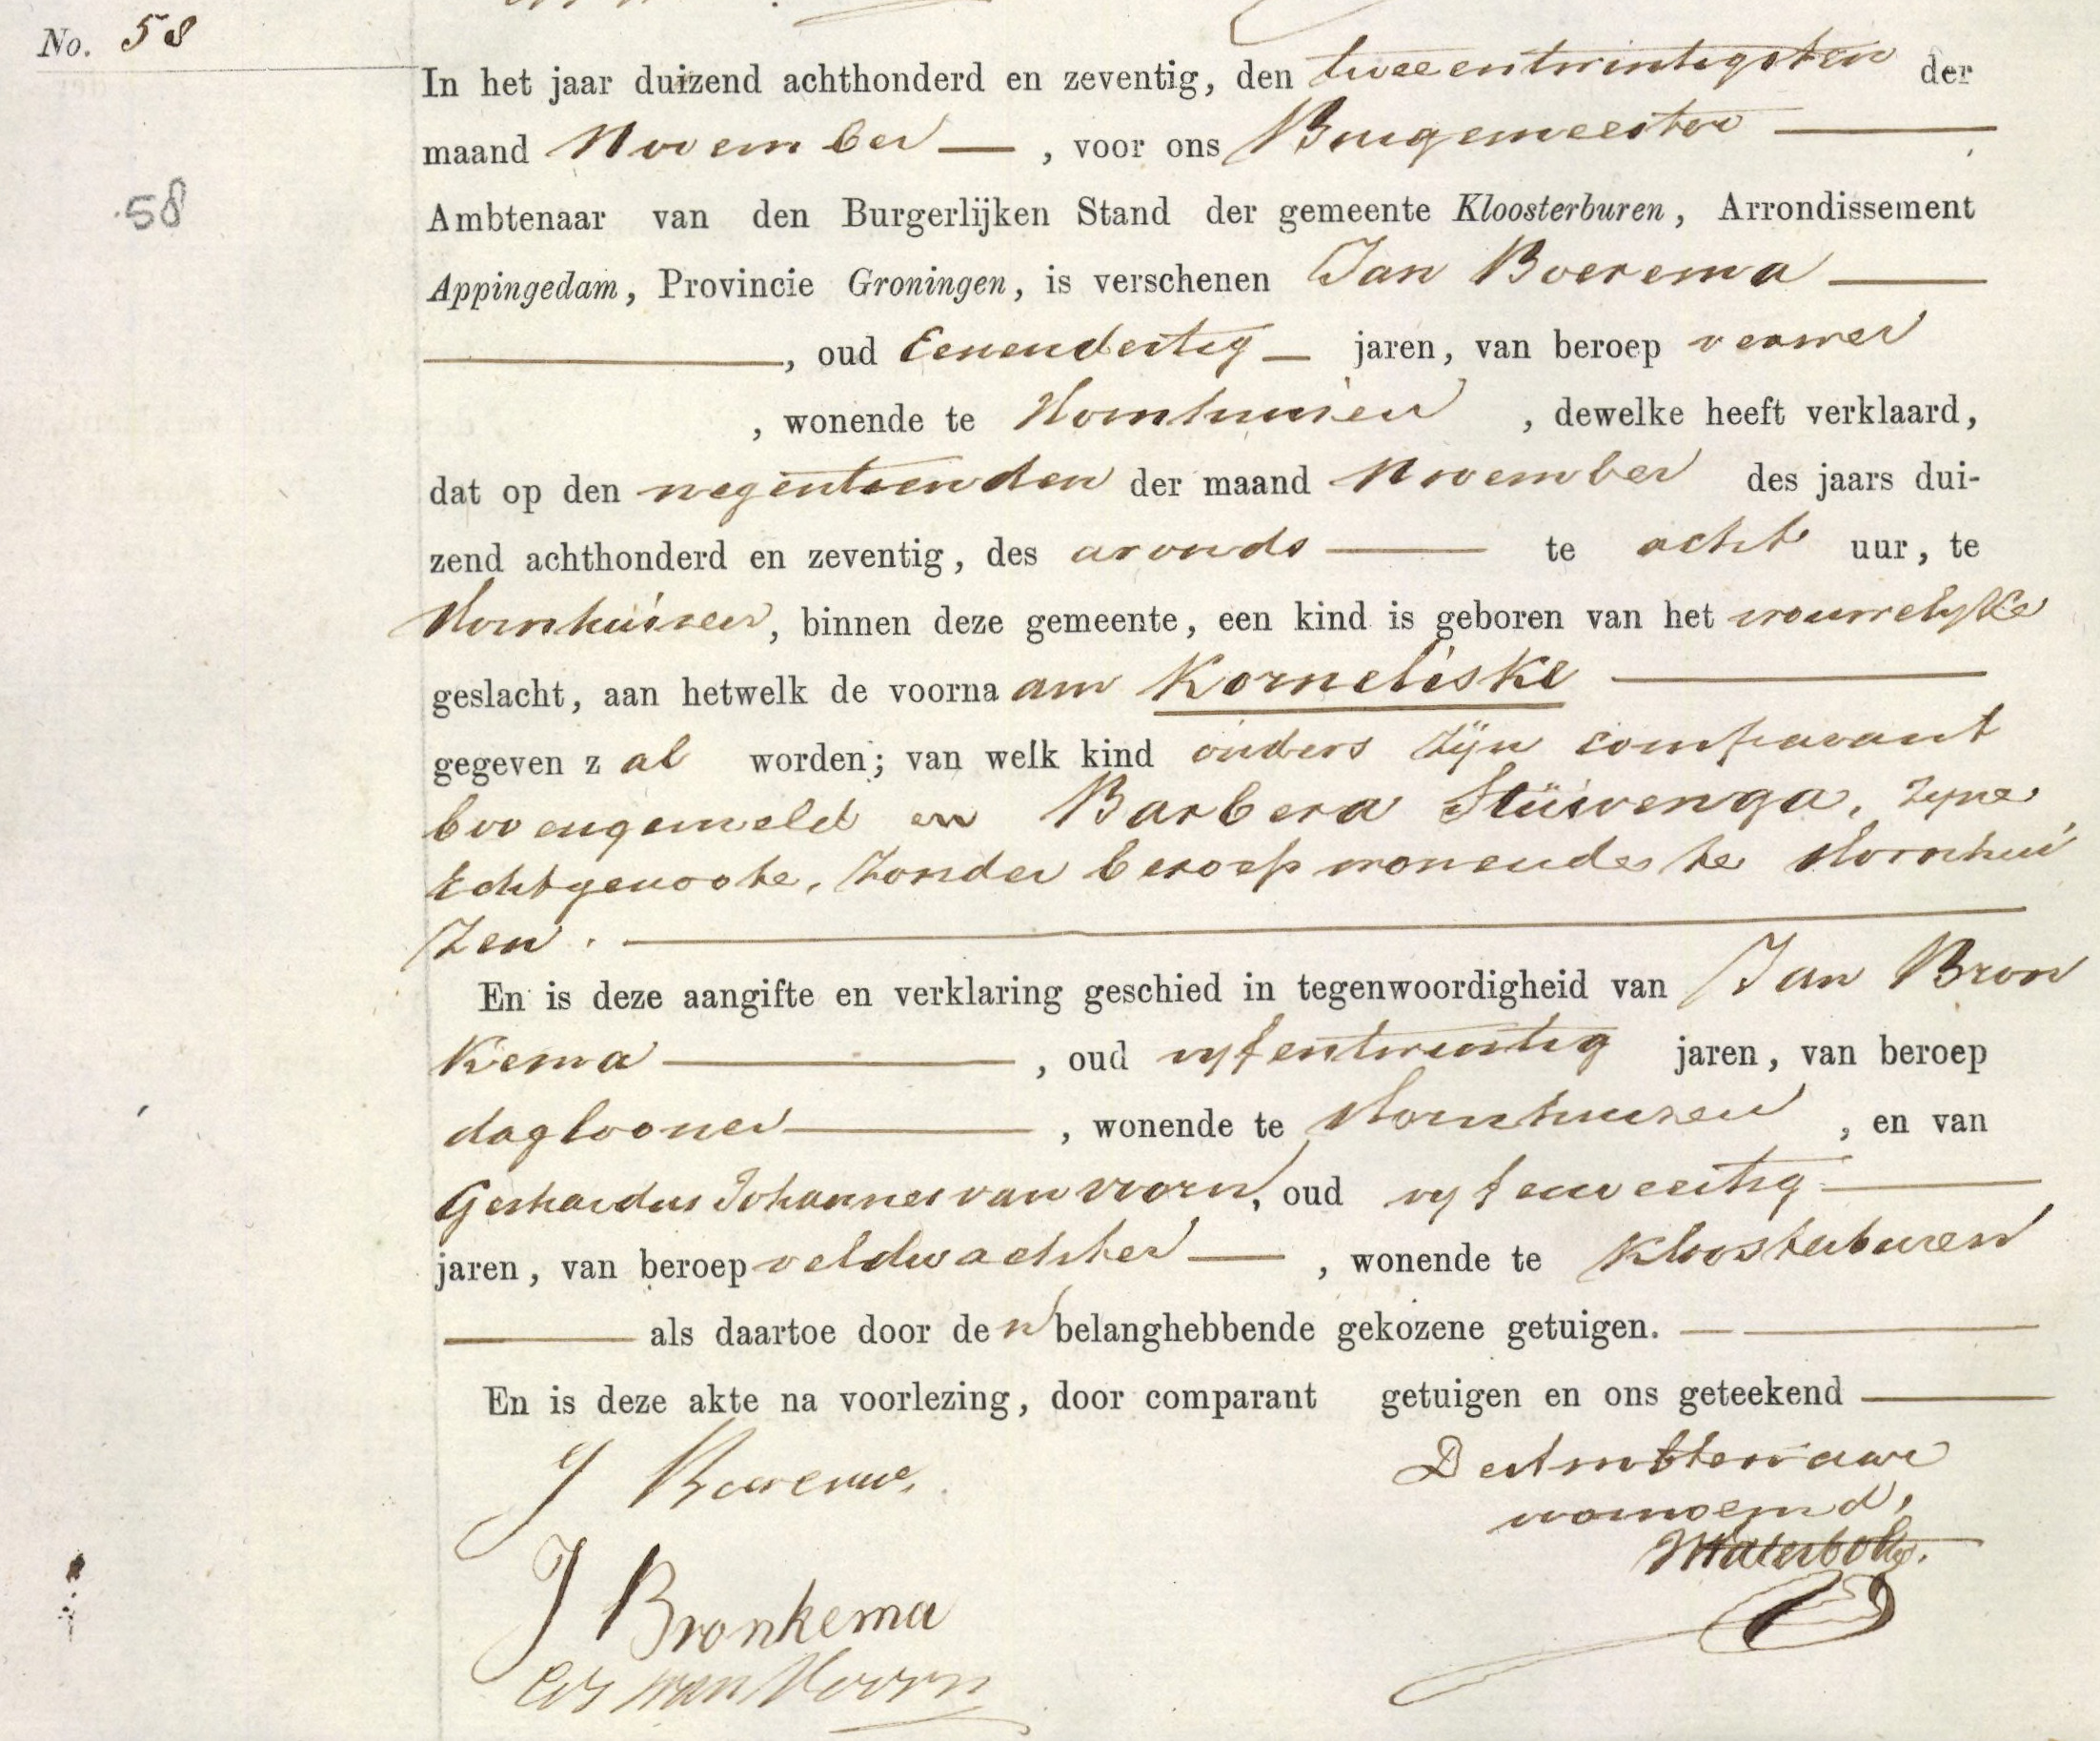 No. 58
In het jaar duizend achthonderd en zeventig, den tweeentwintigsten der
maand November, voor ons Burgemeester
58
Ambtenaar van den Burgerlijken Stand der gemeente Kloosterburen, Arrondissement
Appingedam, Provincie Groningen, is verschenen Jan Boerema
, oud Eenendertig jaren, van beroep verwer
, wonende te Hornhuizen, dewelke heeft verklaard,
dat op den negentienden der maand November des jaars dui-
zend achthonderd en zeventig, des avonds te acht uur, te
Hornhuizen, binnen deze gemeente, een kind is geboren van het vrouwelyke
geslacht, aan hetwelk de voornaam Korneliske
gegeven zal worden; van welk kind ouders zijn comparant
bovengemeld en Barbera Stuivenga, zyne
Echtgenoote, zonder beroep wonende te Hornhui
zen.
En is deze aangifte en verklaring geschied in tegenwoordigheid van Jan Bron
kema, oud vyfentwintig jaren, van beroep
daglooner, wonende te Hornhuizen, en van
Gerhardus Johannes van Voorn, oud vyfenveertig
jaren, van beroep veldwachter, wonende te Kloosterburen
als daartoe door den belanghebbende gekozene getuigen.
En is deze akte na voorlezing, door comparant getuigen en ons geteekend
J Boerema
De Ambtenaar
voornoemd,
Waterbolk.
J Bronkema
van Voorn